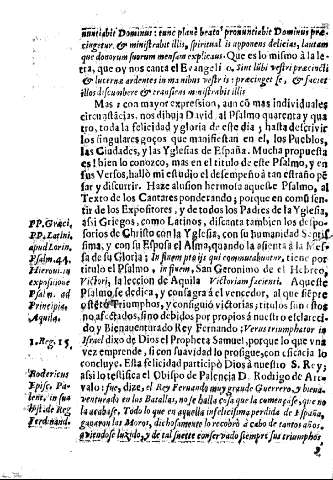 nuntiabit Dominus: tunc planè beatos pronuntiabit Dominus præ-
cingetur, & ministrabit illis, spiritualis apponens delicias, lautam
que donorum suorum mensam explicans. Que es lo mismo à la le-
tra, que oy nos canta el Evangelio. Sint lubi vestri præcincti
& lucernæ ardentes in manibus vestris: præcinget se, & faciet
illos discumbere & transiens ministrabit illis
Mas: con mayor expression, aun cõ mas individuales
circunstãcias, nos dibuja David, al Psalmo quarenta y qua
tro, toda la felicidad y gloria de este dia; hasta descrivir
los singulares goços que manifiestan en el, los Pueblos,
las Ciudades, y las Yglesias de España. Mucha propuesta
es! bien lo conozco, mas en el titulo de este Psalmo, y en
sus Versos, hallò mi estudio el desempeño à tan estraño pẽ
sar y discurrir. Haze alusion hermosa aqueste Psalmo, al
Texto de los Cantares ponderando; porque en comũ sen-
tir de los Expositores, y de todos los Padres de la Yglesia,
assi Griegos, como Latinos, discanta tambien los despo-
sorios de Christo con la Yglesia, con su humanidad Sãtis-
sima, y con su Esposa el Alma, quando la assienta à la Me-
sa de su Gloria; In finem pro ijs qui commutabuntur, tiene por
titulo el Psalmo, in finem, San Geronimo de el Hebreo,
Victori, la leccion de Aquila Victoriam facienti. Aqueste
Psalmo, se dedica, y consagra à el vencedor, al que siempre
obtubo Triumphos, y consiguiò victorias; titulos son estos
no afectados, sino debidos por propios à nuestro esclareci-
do y Bienaventurado Rey Fernando; Verus triumphator in
Israel dixo de Dios el Propheta Samuel, porque lo que vna
vez emprende, si con suavidad lo prosigue, con eficacia lo
concluye. Esta felicidad participò Dios à nuestro S. Rey;
assi lo testifica el Obispo de Palencia D. Rodrigo de Are-
valo: fue, dize, el Rey Fernando muy grande Guerrero, y biena-
venturado en las Batallas, no se halla cosa que la començase, que no
la acabase. Todo lo que en aquella infelicissima perdida de España,
ganaron los Moros, dichosamente lo recobrò à cabo de tantos años,
aviendose luzido, y de tal suerte conservado siempre sus triumphos
PP. Græci,
PP. Latini,
apud Lorin.
Psalm. 44.
Hieron. in
expositione
Psalm. ad
Principia.
Aquila.
1. Reg. 15.
Rodericus
Episc. Pa-
lent. in sua
Hist. de Reg.
Ferdinand.